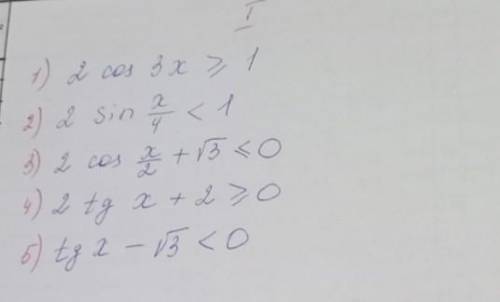 I
1) 2 cos 3x ≥ 1
2) 2 sin x/4 < 1
3) 2 cos x/2 + √3 ≤ 0
4) 2 tg x + 2 ≥ 0
5) tg x − √3 < 0